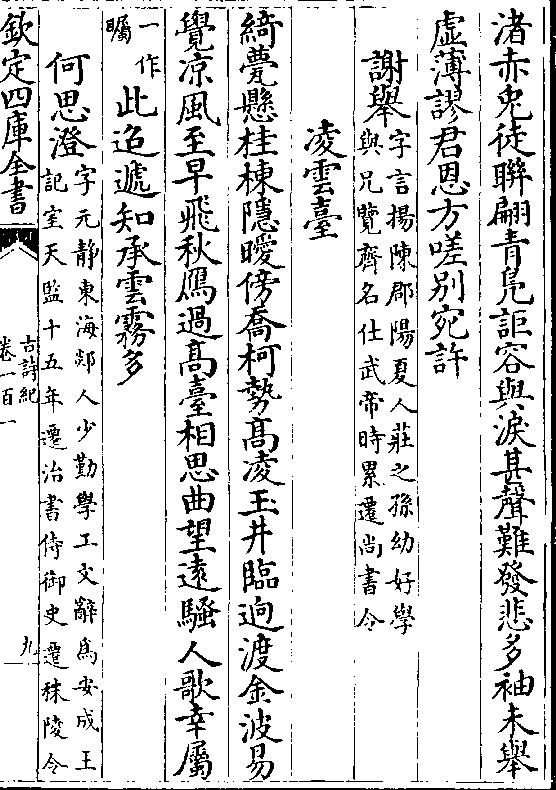 渚赤兎徒聨翩青鳬詎容與淚甚聲難發悲多袖未舉
虛薄謬君恩方嗟别宛許
謝舉字言揚陳郡陽夏人莊之孫幼好學與兄覽齊名仕武帝時累遷尚書令
凌雲臺
綺甍懸桂棟隱曖傍喬柯勢髙凌玉井臨逈渡金波易
覺凉風至早飛秋鴈過髙臺相思曲望遠騷人歌幸屬
一作矚此迢遞知承雲霧多
何思澄字元静東海郯人少勤學工文辭為安成王記室天監十五年遷治書侍御史遷秣陵令
欽定四庫全書
古詩紀
卷一百一
九